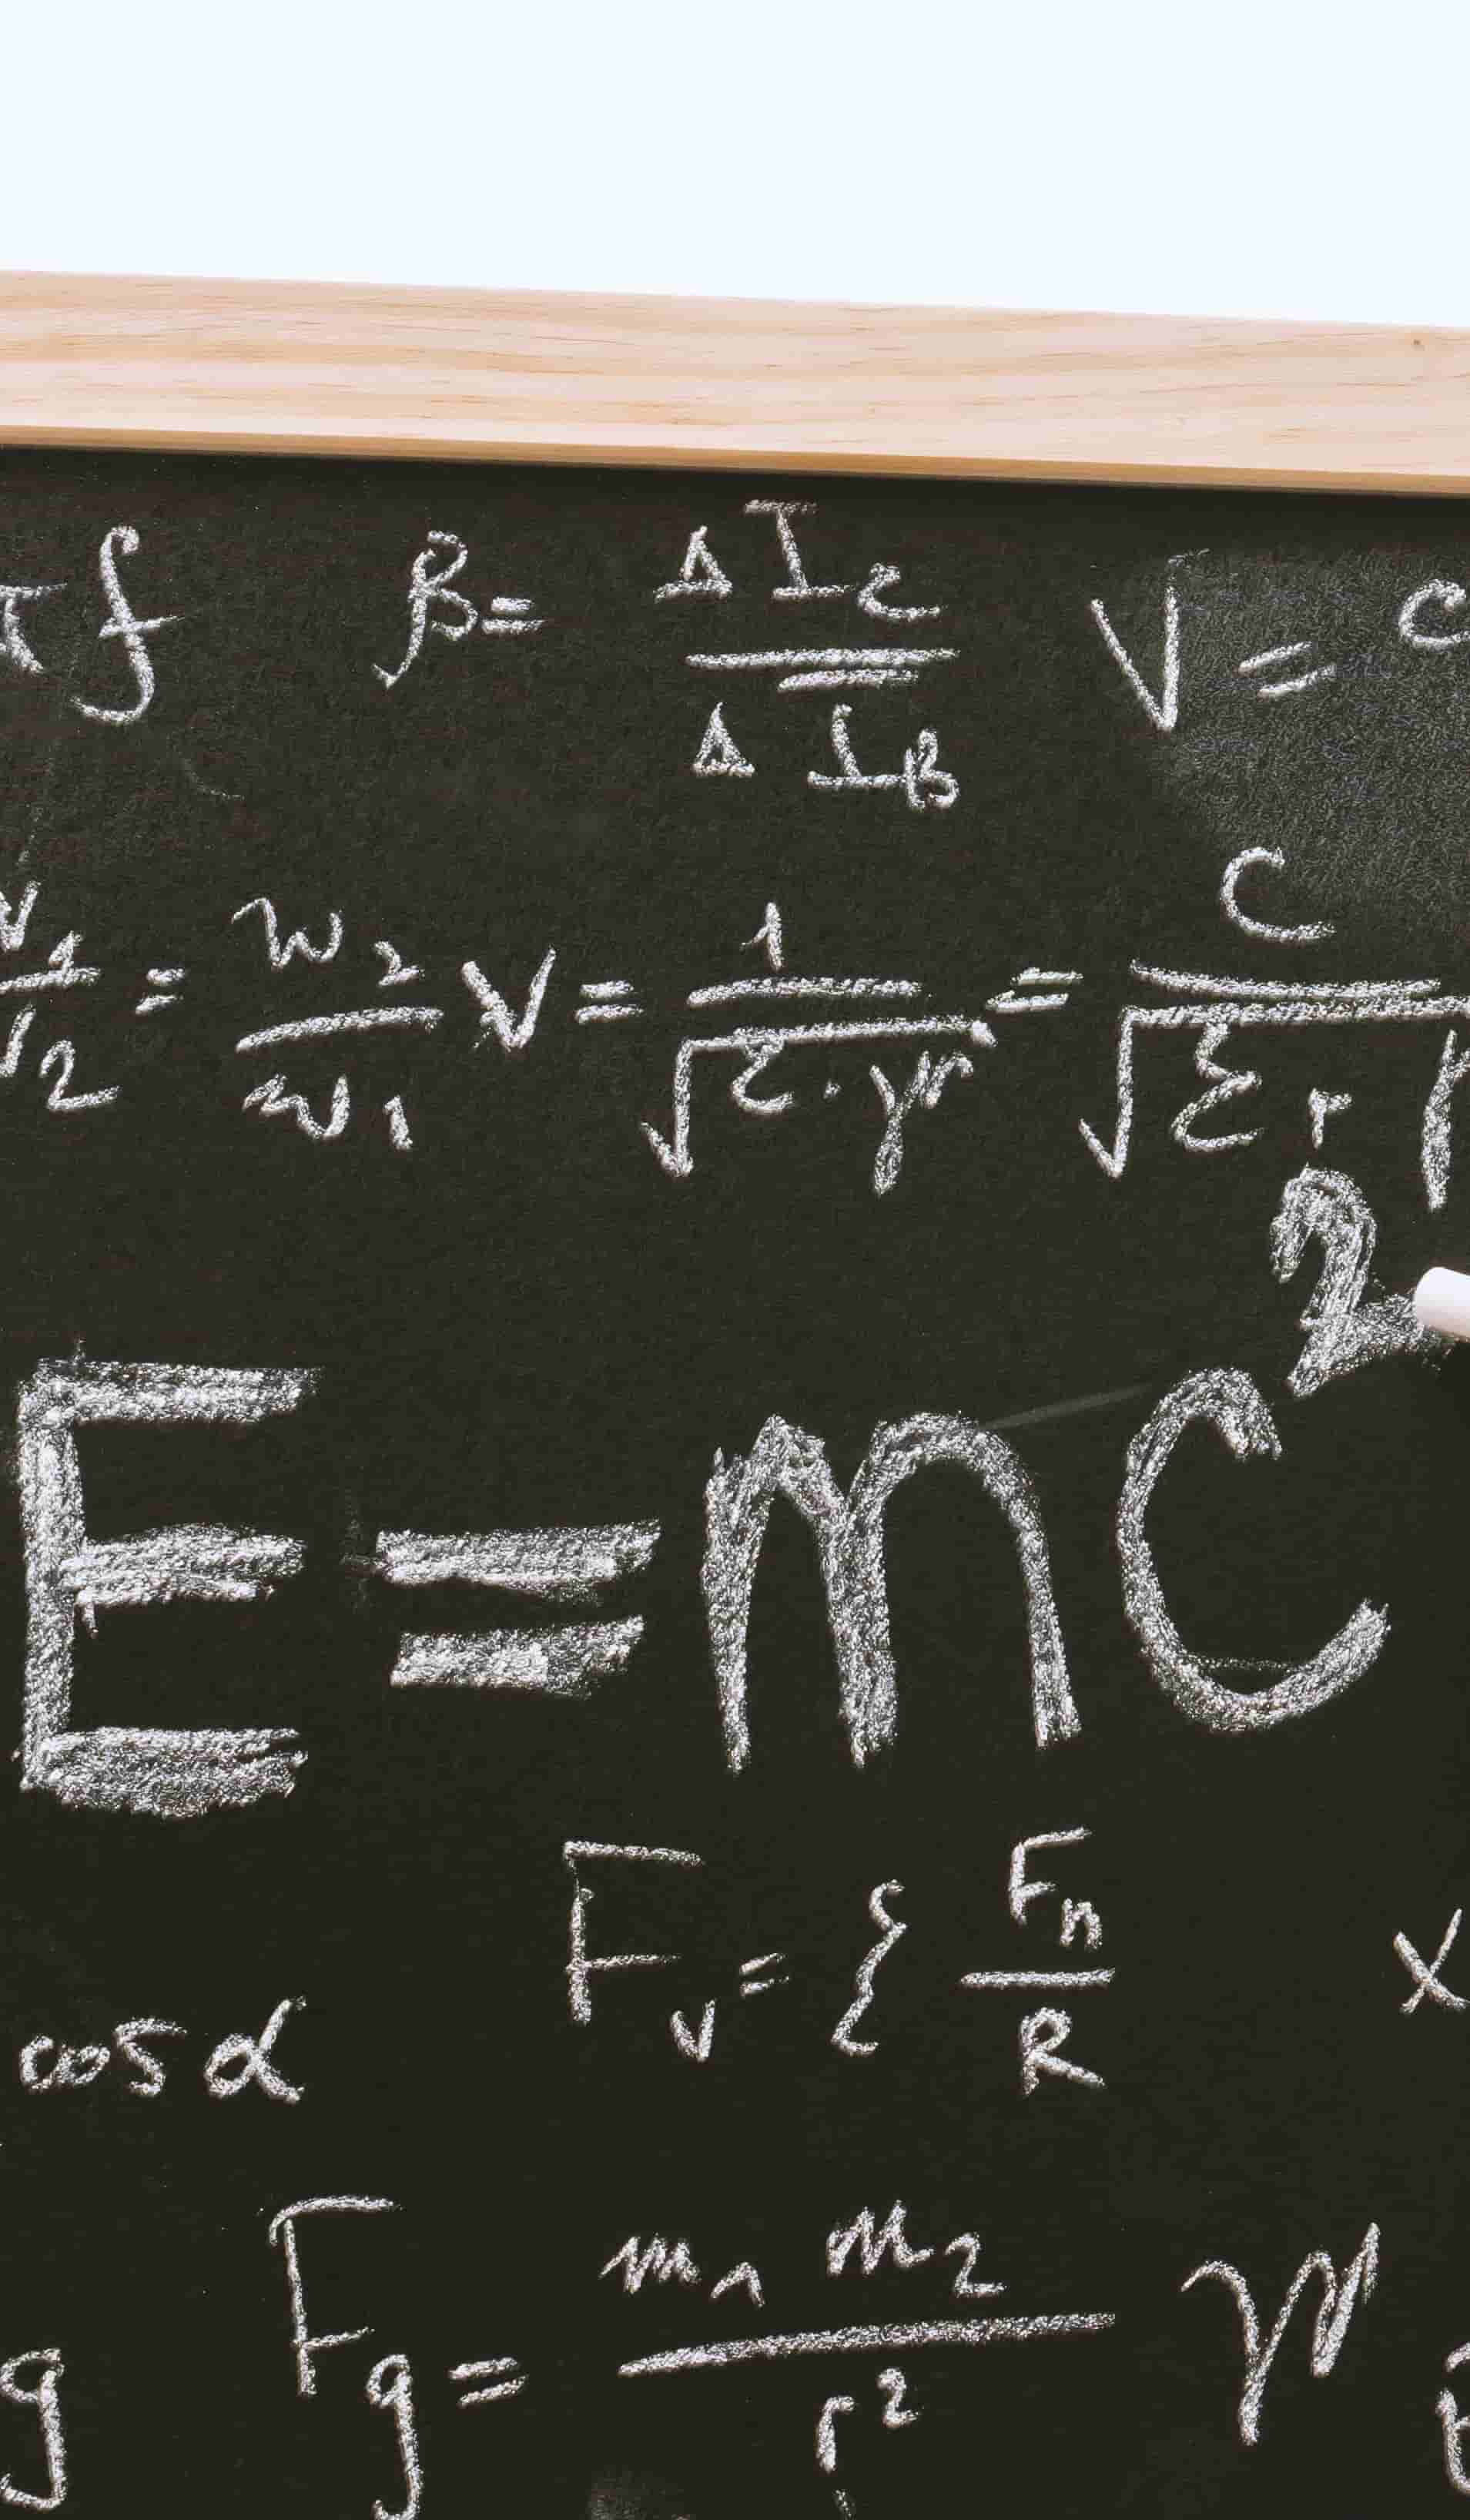 πf β = ΔI_c / ΔI_B V = c
/ 2 = w_2 / w_1 V = 1 / √(ε · μ) = C / √(ε_r
E = mc²
cos α F_v = { F_n / R x
g F_g = m_1 m_2 / r²